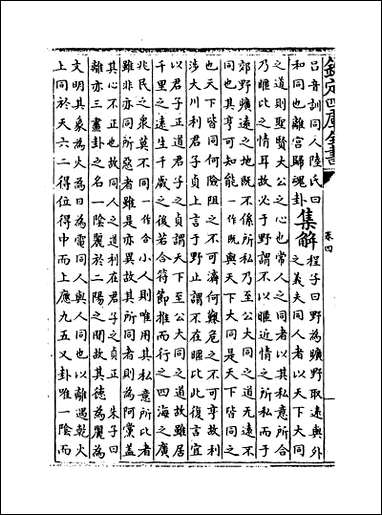 欽定四庫全書
卷四
呂音訓同人陸氏曰
和同也離宮歸魂卦
集解
程子曰野為曠野取遠與外
之義夫同人者以天下大同
之道則聖賢大公之心也常人之同者以其私意所合
乃暱比之情耳故必于野謂不以暱近情之所私而于
郊野曠遠之地既不係所私乃至公大同之道无遠不
同也其亨可知能一作既與天下大同是天下皆同之
也天下皆同何險阻之不可濟何艱危之不可亨故利
涉大川利君子貞上言于野止謂不在暱比此復言宜
以君子正道君子之貞謂天下至公大同之道故雖居
千里之遠生千歲之後若合符節推而行之四海之廣
兆民之衆莫不同一作合小人則唯用其私意所比者
雖非亦同所惡者雖是亦異故其所同者則為阿黨蓋
其心不正也故同人之道利在君子之貞 朱子曰
離亦三畫卦之名一陰麗於二陽之間故其德為麗為
文明其象為火為日為電同人與人同也以離遇乾火
上同於天六二得位得中而上應九五又卦唯一陰而